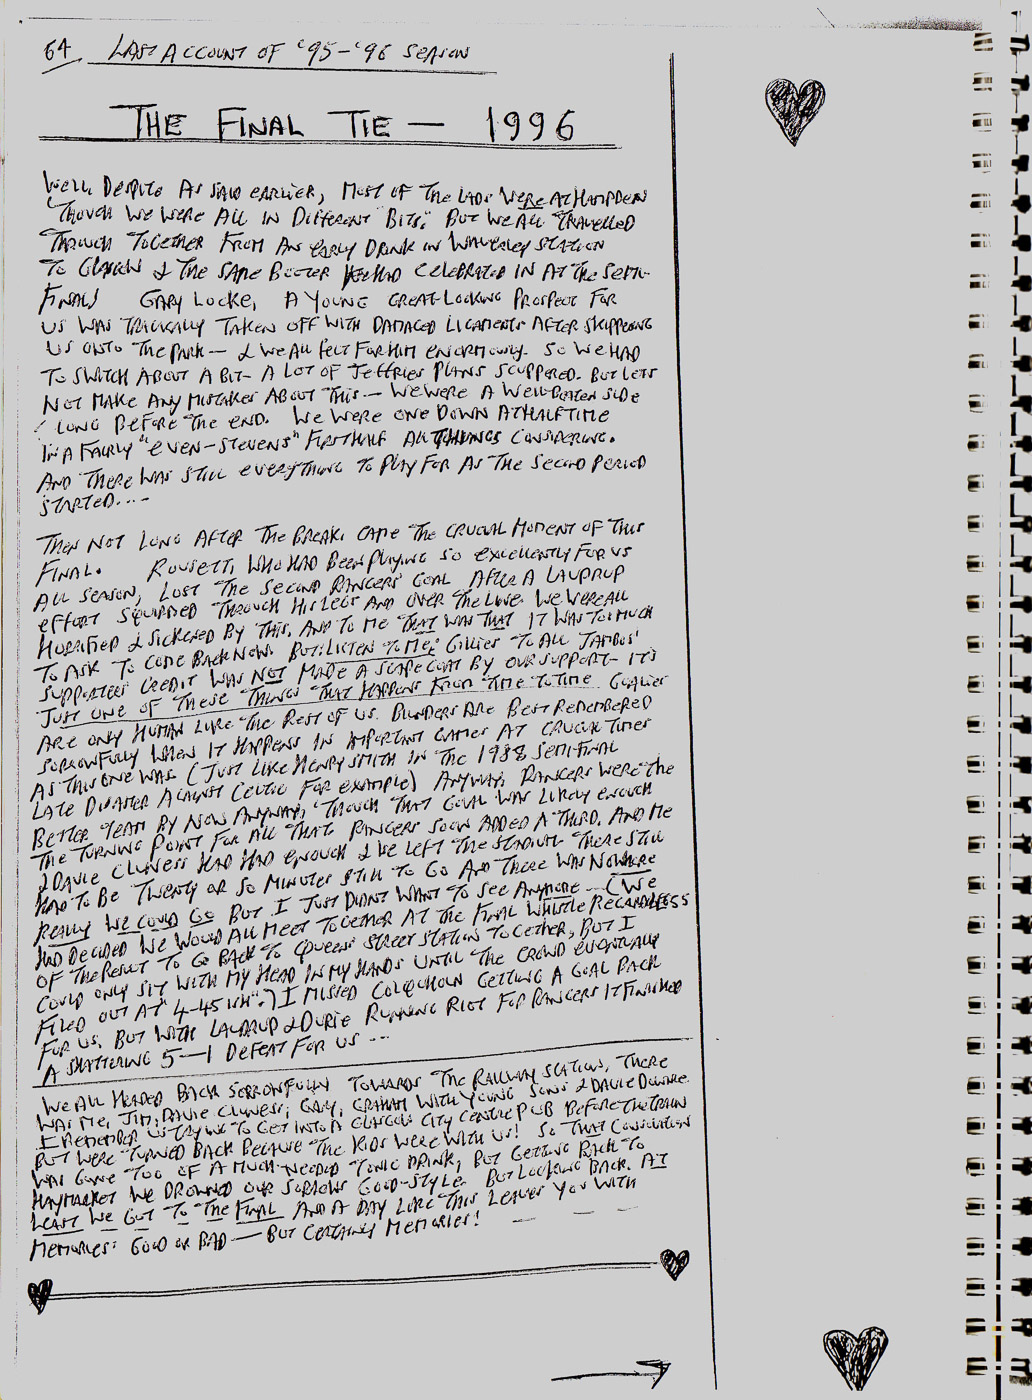 64 LAST ACCOUNT OF '95-'96 SEASON
THE FINAL TIE — 1996
WELL DESPITE AS SAID EARLIER, MOST OF THE LADS WERE AT HAMPDEN
'THOUGH WE WERE ALL IN DIFFERENT "BITS". BUT WE ALL TRAVELLED
THROUGH TOGETHER FROM AN EARLY DRINK IN WAVERLEY STATION
TO GLASGOW & THE SAME BOOZER WE HAD CELEBRATED IN AT THE SEMI-
FINAL! GARY LOCKE, A YOUNG GREAT-LOOKING PROSPECT FOR
US WAS TRAGICALLY TAKEN OFF WITH DAMAGED LIGAMENTS AFTER SKIPPERING
US ONTO THE PARK — & WE ALL FELT FOR HIM ENORMOUSLY. SO WE HAD
TO SWITCH ABOUT A BIT - A LOT OF JEFFRIES PLANS SCUPPERED. BUT LETS
NOT MAKE ANY MISTAKES ABOUT THIS — WE WERE A WELL-BEATEN SIDE
LONG BEFORE THE END. WE WERE ONE DOWN AT HALF TIME
IN A FAIRLY "EVEN-STEVENS" FIRST HALF ALL THINGS CONSIDERING.
AND THERE WAS STILL EVERYTHING TO PLAY FOR AS THE SECOND PERIOD
STARTED....
THEN NOT LONG AFTER THE BREAK CAME THE CRUCIAL MOMENT OF THIS
FINAL. ROUSETT, WHO HAD BEEN PLAYING SO EXCELLENTLY FOR US
ALL SEASON, LOST THE SECOND RANGERS' GOAL AFTER A LAUDRUP
EFFORT SQUIRMED THROUGH HIS LEGS AND OVER THE LINE. WE WERE ALL
HORRIFIED & SICKENED BY THIS, AND TO ME THAT WAS THAT IT WAS TOO MUCH
TO ASK TO COME BACK NOW. BUT LISTEN TO ME: GILLIES TO ALL JAMBOS'
SUPPORTERS CREDIT WAS NOT MADE A SCAPEGOAT BY OUR SUPPORT - IT'S
JUST ONE OF THESE THINGS THAT HAPPENS FROM TIME TO TIME. GOALIES
ARE ONLY HUMAN LIKE THE REST OF US. BLUNDERS ARE BEST REMEMBERED
SORROWFULLY WHEN IT HAPPENS IN IMPORTANT GAMES AT CRUCIAL TIMES
AS THIS ONE WAS (JUST LIKE HENRY SMITH IN THE 1988 SEMI-FINAL
LATE DISASTER AGAINST CELTIC FOR EXAMPLE) ANYWAY, RANGERS WERE THE
BETTER TEAM BY NOW ANYWAY, 'THOUGH THAT GOAL WAS LIKELY ENOUGH
THE TURNING POINT FOR ALL THAT. RANGERS SOON ADDED A THIRD, AND ME
& DAVIE CLUNESS HAD HAD ENOUGH & WE LEFT THE STADIUM. THERE STILL
HAD TO BE TWENTY OR SO MINUTES STILL TO GO AND THERE WAS NOWHERE
REALLY WE COULD GO BUT I JUST DIDNT WANT TO SEE ANYMORE — (WE
HAD DECIDED WE WOULD ALL MEET TOGETHER AT THE FINAL WHISTLE REGARDLESS
OF THE RESULT TO GO BACK TO QUEENS STREET STATION TOGETHER, BUT I
COULD ONLY SIT WITH MY HEAD IN MY HANDS UNTIL THE CROWD EVENTUALLY
FILED OUT AT "4-45 ISH".) I MISSED COLQUHOUN GETTING A GOAL BACK
FOR US, BUT WITH LAUDRUP & DURIE RUNNING RIOT FOR RANGERS IT FINISHED
A SHATTERING 5—1 DEFEAT FOR US ...
WE ALL HEADED BACK SORROWFULLY TOWARDS THE RAILWAY STATION, THERE
WAS ME, JIM, DAVIE CLUNESS, GARY, GRAHAM WITH YOUNG SONS & DAVIE
I REMEMBER US TRYING TO GET INTO A GLASGOW CITY CENTRE PUB BEFORE THE TRAIN
BUT WERE TURNED BACK BECAUSE THE KIDS WERE WITH US! SO THAT CONSOLATION
WAS GONE TOO OF A MUCH-NEEDED TONIC DRINK, BUT GETTING BACK TO
HAYMARKET WE DROWNED OUR SORROWS GOOD-STYLE. BUT LOOKING BACK AT
LEAST WE GOT TO THE FINAL AND A DAY LIKE THIS LEAVES YOU WITH
MEMORIES: GOOD OR BAD — BUT CERTAINLY MEMORIES!